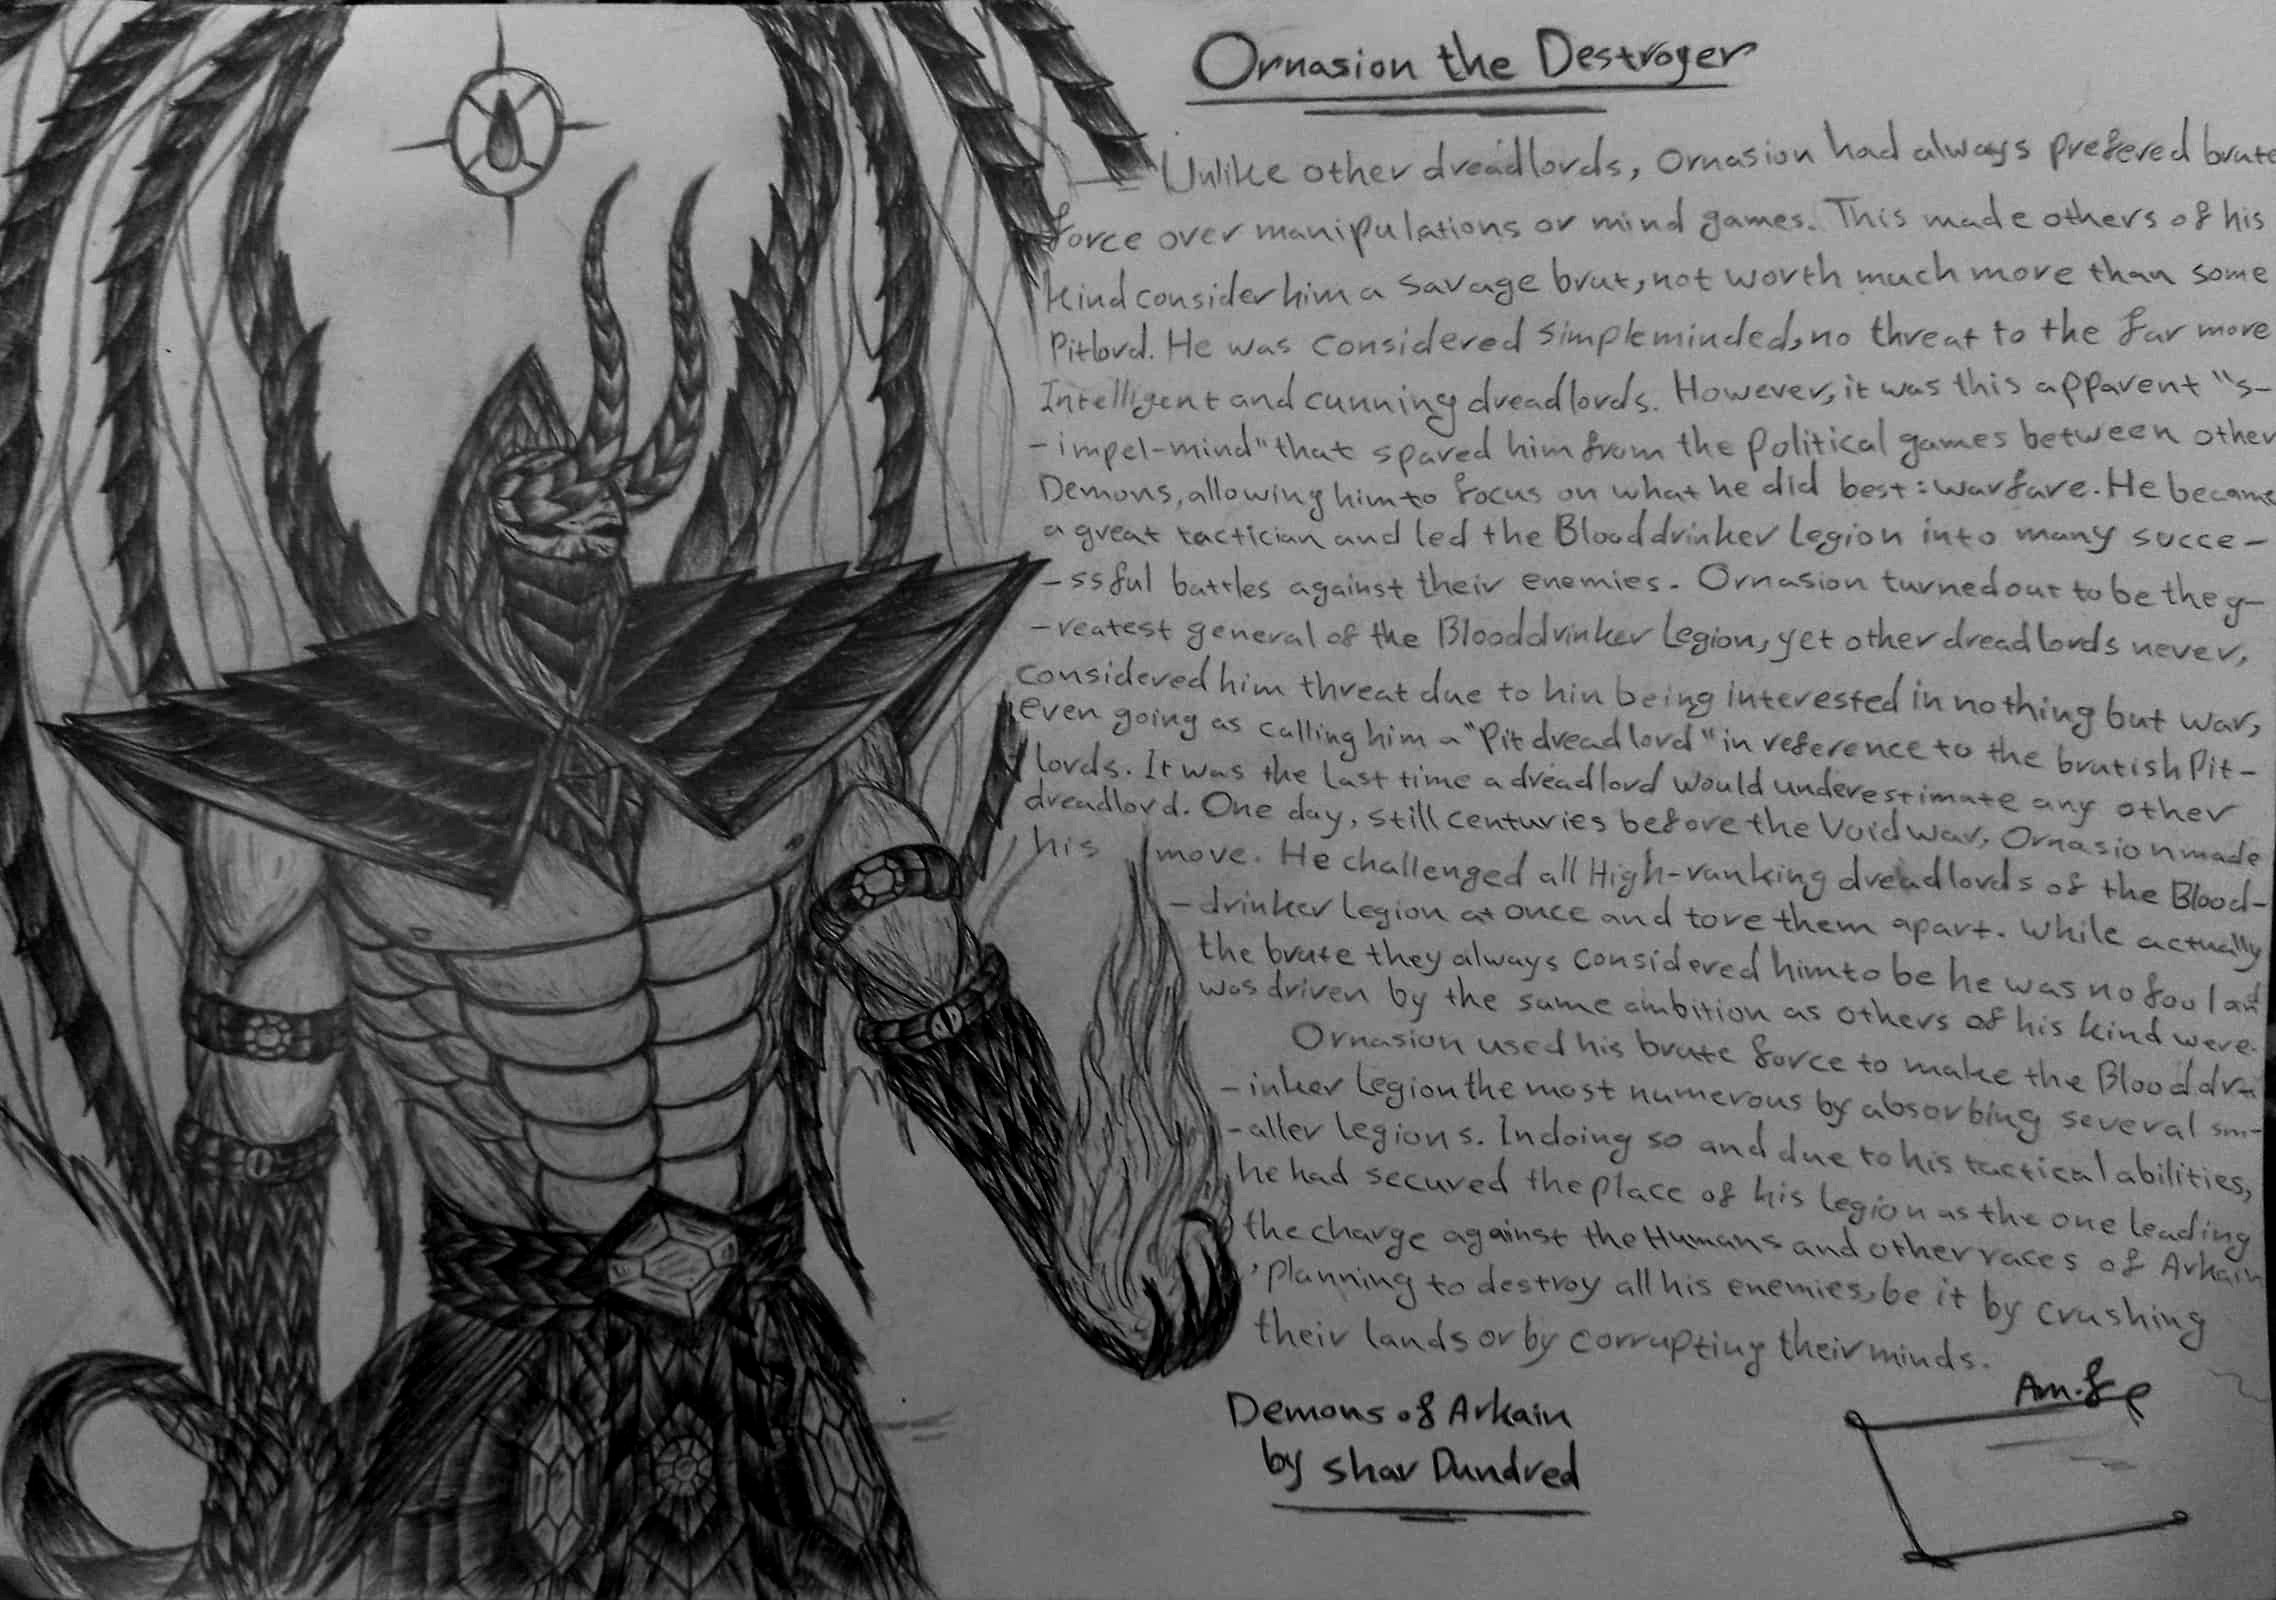 Ornasion the Destroyer
Unlike other dreadlords, Ornasion had always prefered brute
force over manipulations or mind games. This made others of his
kind consider him a savage brut, not worth much more than some
Pitlord. He was considered simpleminded, no threat to the far more
Intelligent and cunning dreadlords. However, it was this apparent "s-
-impel-mind" that spared him from the political games between other
Demons, allowing him to focus on what he did best: warfare. He became
a great tactician and led the Blooddrinker Legion into many succe-
-ssful battles against their enemies. Ornasion turned out to be the g-
-reatest general of the Blooddrinker Legion, yet other dreadlords never,
considered him threat due to hin being interested in nothing but war,
even going as calling him a "Pit dreadlord" in reference to the brutish Pit-
lords. It was the last time a dreadlord would underestimate any other
dreadlord. One day, still centuries before the Void war, Ornasion made
his move. He challenged all High-ranking dreadlords of the Blood-
-drinker legion at once and tore them apart. While actually
the brute they always considered him to be he was no fool and
was driven by the same ambition as others of his kind were.
Ornasion used his brute force to make the Blooddr-
-inker Legion the most numerous by absorbing several sm-
-aller legions. In doing so and due to his tactical abilities,
he had secured the place of his legion as the one leading
the charge against the Humans and other races of Arkain
, planning to destroy all his enemies, be it by crushing
their lands or by corrupting their minds.
Demons of Arkain
by Shar Dundred